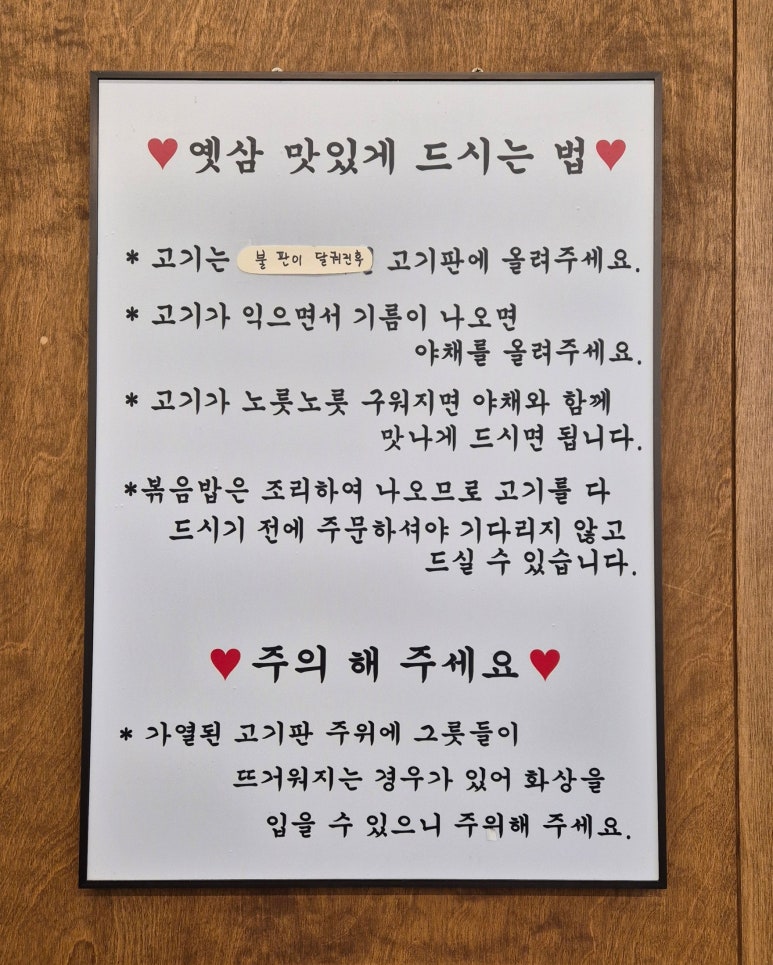 ♥옛삼 맛있게 드시는 법♥
* 고기는 불 판이 달궈진후 고기판에 올려주세요.
* 고기가 익으면서 기름이 나오면
야채를 올려주세요.
* 고기가 노릇노릇 구워지면 야채와 함께
맛나게 드시면 됩니다.
*볶음밥은 조리하여 나오므로 고기를 다
드시기 전에 주문하셔야 기다리지 않고
드실 수 있습니다.
♥주의 해 주세요♥
* 가열된 고기판 주위에 그릇들이
뜨거워지는 경우가 있어 화상을
입을 수 있으니 주의해 주세요.